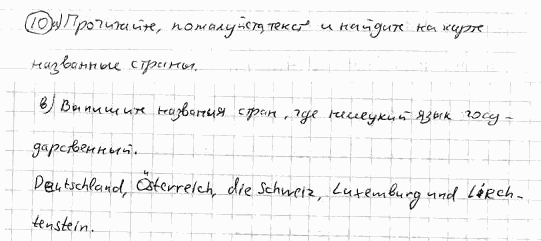 10 а) Прочитайте, пожалуйста текст и найдите на карте
названные страны.
в) Выпишите названия стран, где немецкий язык госу-
дарственный.
Deutschland, Österreich, die Schweiz, Luxemburg und Liech-
tenstein.